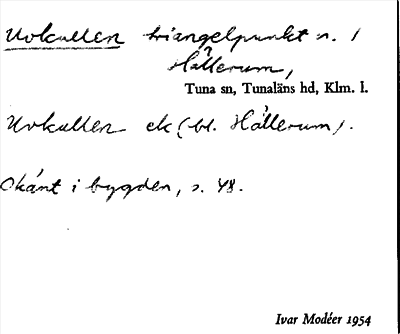 Uvkullen triangelpunkt n. /
Hållerum,
Tuna sn, Tunaläns hd, Klm. l.
Uvkullen ek (bl. Hållerum).
Okänt i bygden, s. 48.
Ivar Modéer 1954